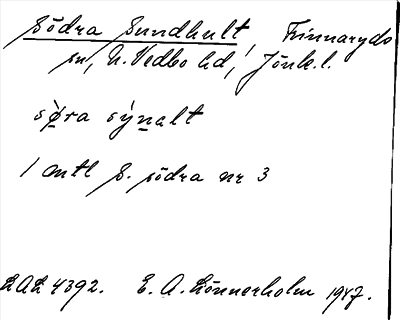 Södra Sundhult, Finnaryds
sn, N. Vedbo hd, Jönk. l.
sø̀ra sỳnalt
1 mtl S. södra nr 3
LAL 4392. E. A. Lönnerholm 1947.